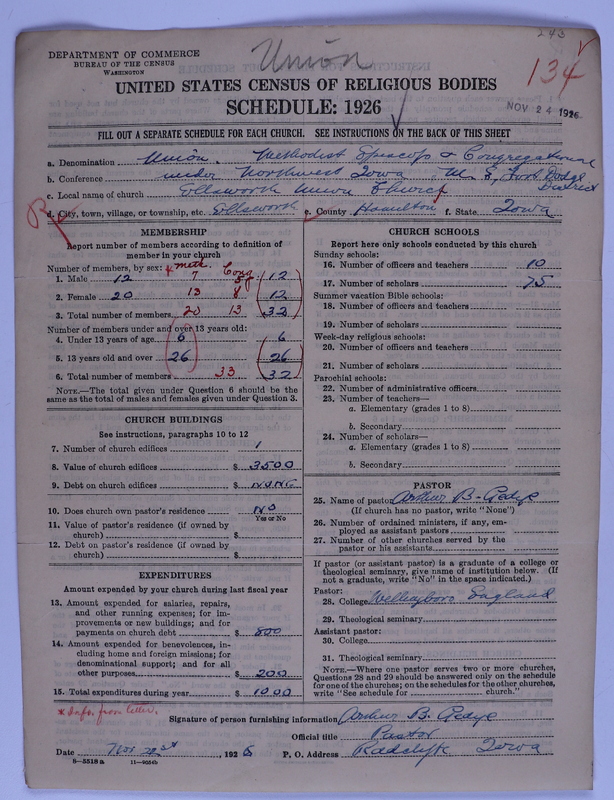 243
DEPARTMENT OF COMMERCE
BUREAU OF THE CENSUS
WASHINGTON
Union
134
UNITED STATES CENSUS OF RELIGIOUS BODIES
SCHEDULE: 1926
NOV 24 1926
FILL OUT A SEPARATE SCHEDULE FOR EACH CHURCH. SEE INSTRUCTIONS ON THE BACK OF THIS SHEET
a. Denomination Union. Methodist Episcop & Congregational
b. Conference under Northwest Iowa M. E. Fort Dodge District
c. Local name of church Ellsworth Union Church
d. City, town, village, or township, etc. Ellsworth e. County Hamilton f. State Iowa
MEMBERSHIP
Report number of members according to definition of member in your church
Number of members, by sex: * Meth. Cong
1. Male 12 7 5 12
2. Female 20 13 8 12
3. Total number of members 20 13 32
Number of members under and over 13 years old:
4. Under 13 years of age 6 6
5. 13 years old and over 26 26
6. Total number of members 33 32
NOTE.—The total given under Question 6 should be the
same as the total of males and females given under Question 3.
CHURCH BUILDINGS
See instructions, paragraphs 10 to 12
7. Number of church edifices 1
8. Value of church edifices $ 3500
9. Debt on church edifices $ NONE
10. Does church own pastor's residence NO
Yes or No
11. Value of pastor's residence (if owned by
church) $
12. Debt on pastor's residence (if owned by
church) $
EXPENDITURES
Amount expended by your church during last fiscal year
13. Amount expended for salaries, repairs,
and other running expenses; for im-
provements or new buildings; and for
payments on church debt $ 800
14. Amount expended for benevolences, in-
cluding home and foreign missions; for
denominational support; and for all
other purposes $ 200
15. Total expenditures during year $ 1000
* Info. from letter.
CHURCH SCHOOLS
Report here only schools conducted by this church
Sunday schools:
16. Number of officers and teachers 10
17. Number of scholars 75
Summer vacation Bible schools:
18. Number of officers and teachers
19. Number of scholars
Week-day religious schools:
20. Number of officers and teachers
21. Number of scholars
Parochial schools:
22. Number of administrative officers
23. Number of teachers—
a. Elementary (grades 1 to 8)
b. Secondary
24. Number of scholars—
a. Elementary (grades 1 to 8)
b. Secondary
PASTOR
25. Name of pastor Arthur B. Gedye
(If church has no pastor, write "None")
26. Number of ordained ministers, if any, em-
ployed as assistant pastors
27. Number of other churches served by the
pastor or his assistants
If pastor (or assistant pastor) is a graduate of a college or
theological seminary, give name of institution below. (If
not a graduate, write "No" in the space indicated.)
Pastor:
28. College England
29. Theological seminary
Assistant pastor:
30. College
31. Theological seminary
NOTE.—Where one pastor serves two or more churches,
Questions 28 and 29 should be answered only on the schedule
for one of the churches; on the schedules for the other churches,
write "See schedule for church."
Signature of person furnishing information Arthur B. Gedye
Official title Pastor
Date Nov 22nd, 1926 P. O. Address Radcliffe Iowa
8—5518a 11—9034b